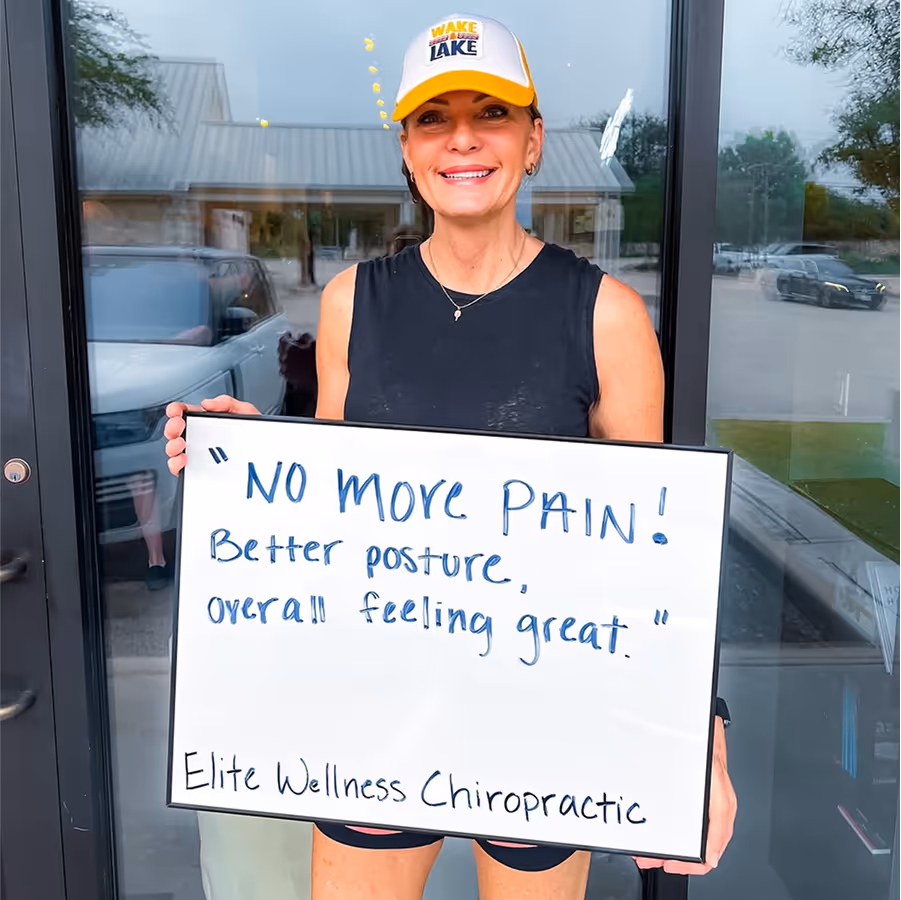 WAKE
LAKE
"NO MORE PAIN!
Better posture,
overall feeling great."
Elite Wellness Chiropractic